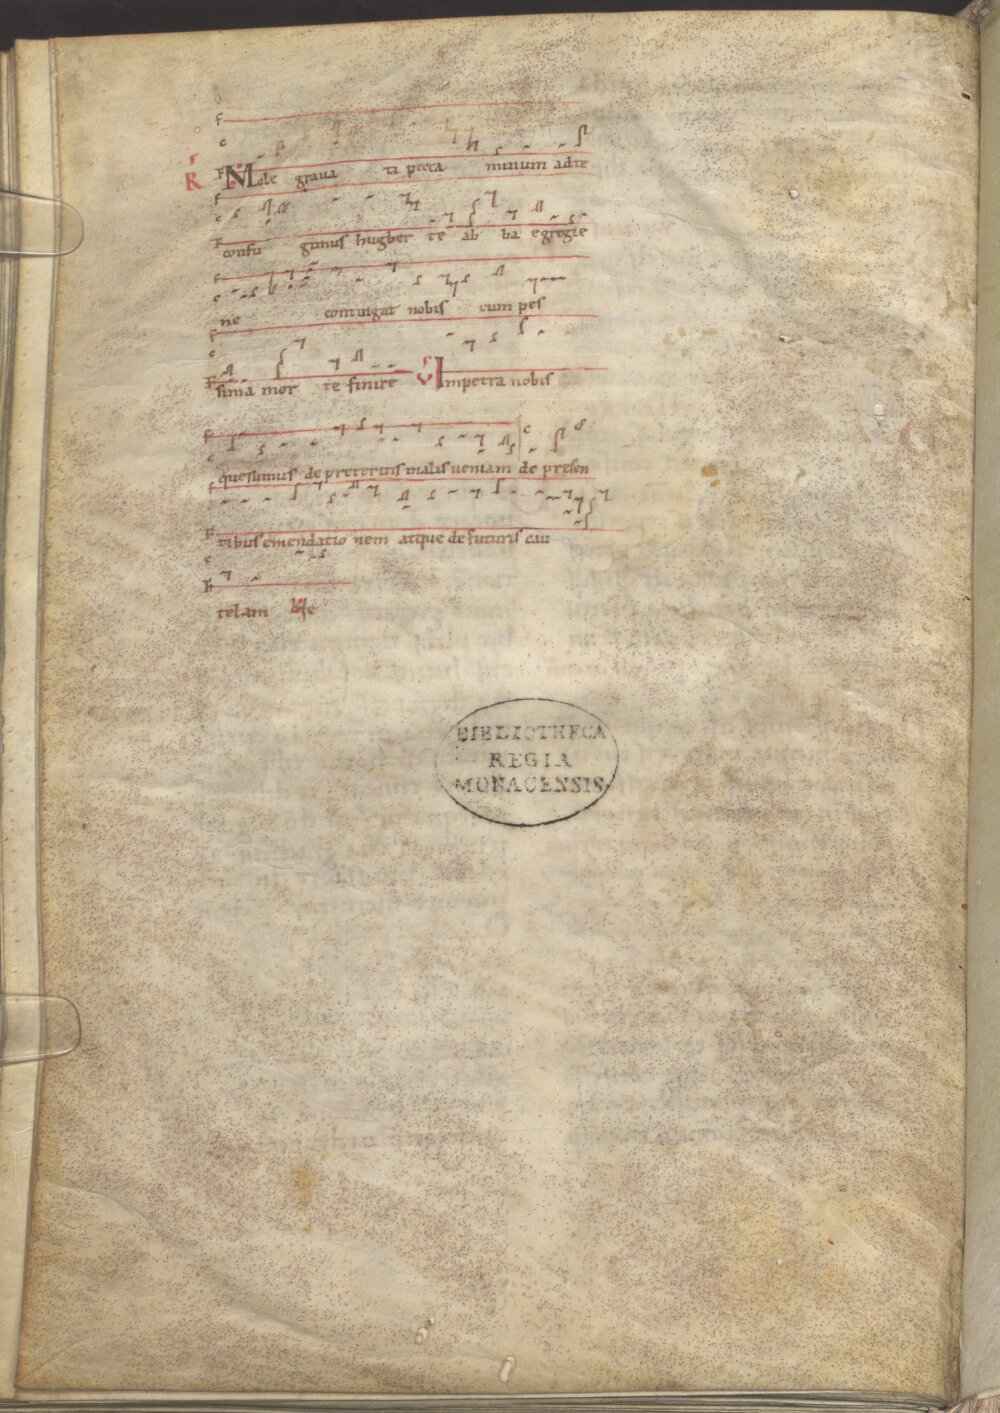 R Mole graua ti pecca minum ad te
confu gimus hugber te ab ba egregie
ne contingat nobis cum pes
sima mor te finire V Impetra nobis
quesumus de preteritis malis ueniam de presen
tibus emendatio nem atque de futuris cau
telam Ne
BIBLIOTHECA
REGIA
MONACENSIS